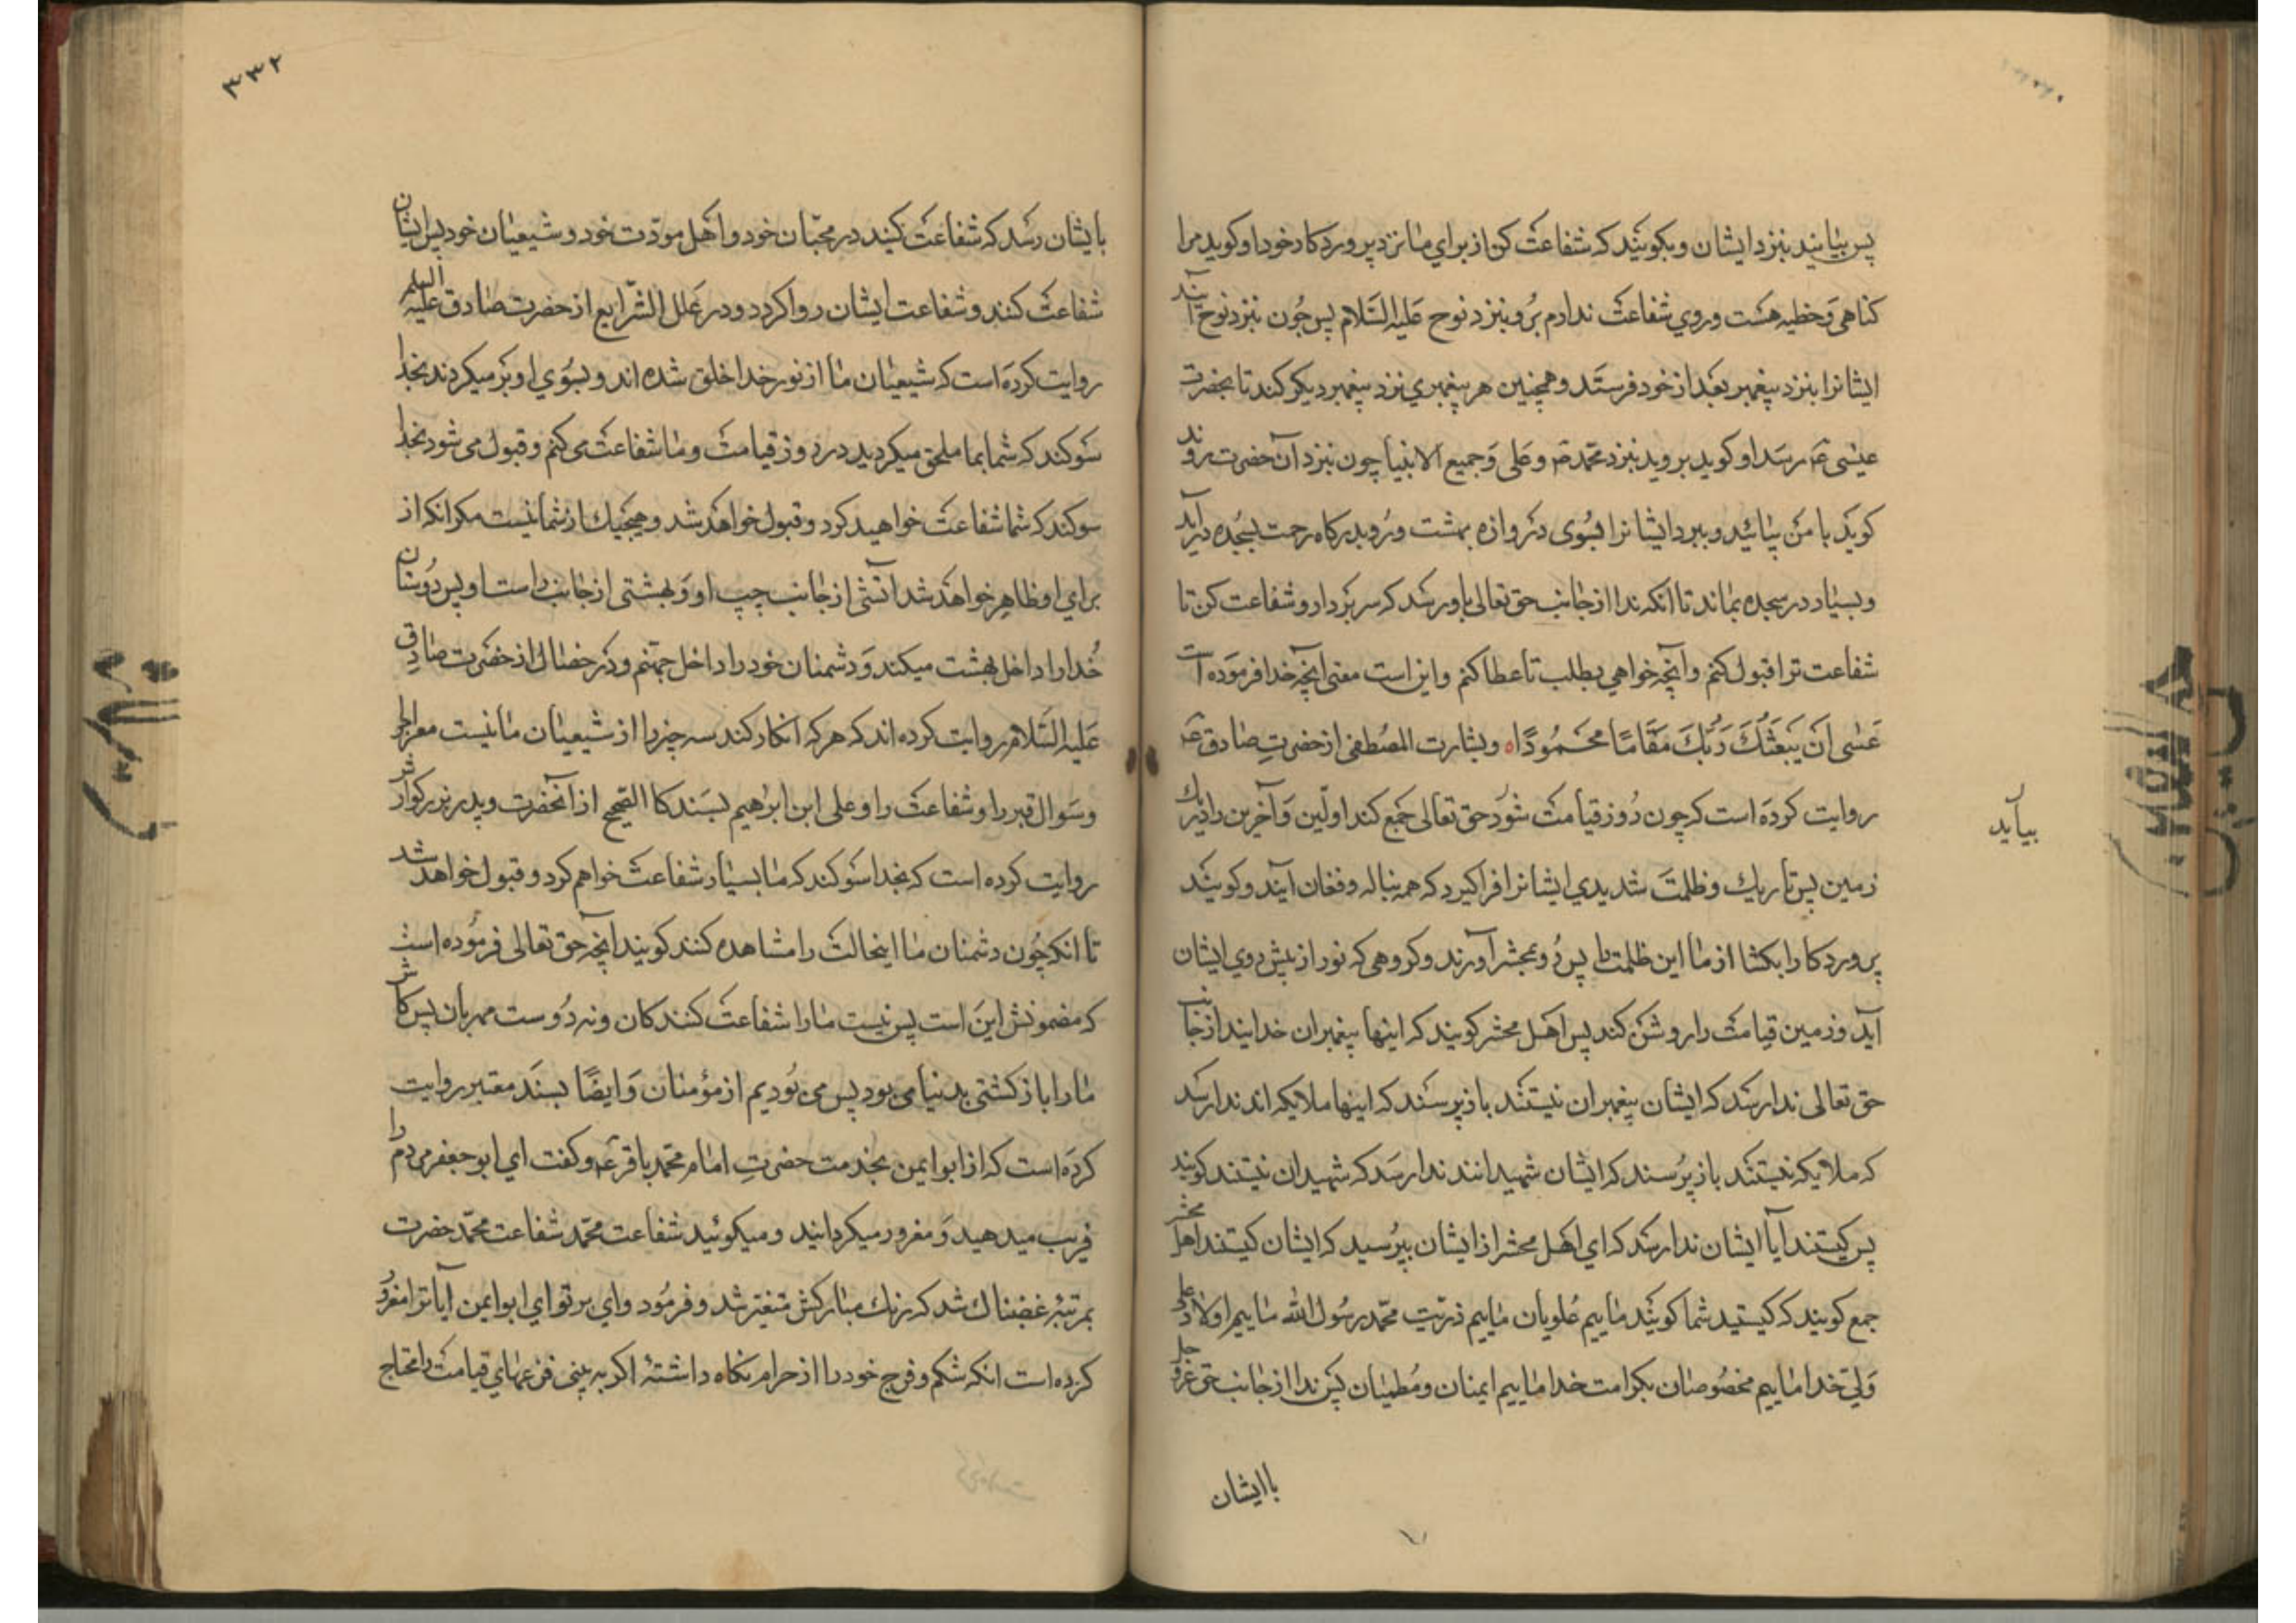 پس بیایند بنزد ایشان و بکویند که شفاعت کن از برای ما نزد پروردکار خود او کوید مرا
کناهی و خطیه هست و روی شفاعت ندارم برو بنزد نوح علیه السلام پس چون بنزد نوح آیند
ایشانرا بنزد پیغمبر بعد از خود فرستد و همچنین هر پیغمبری نزد پیغمبر دیکر کند تا بحضرت
عیسی ع رسد او کوید بروید بنزد محمد ص و علی و جمیع الانبیا چون بنزد آن حضرت روند
کوید با من بیائید و ببرد ایشانرا بسوی دروازه بهشت و رو بدرکاه رحمت بسجده درآید
و بسیار در سجده بماند تا انکه ندا از جانب حق تعالی باو رسد که سر بردار و شفاعت کن تا
شفاعت ترا قبول کنم و آنچه خواهی بطلب تا عطا کنم و این است معنی آنچه خدا فرموده است
عسی ان یبعثک ربک مقاما محمودا ه و بشارت المصطفی از حضرت صادق ع
روایت کرده است که چون روز قیامت شود حق تعالی جمع کند اولین و آخرین را در یک
بیاید
زمین پس تاریک و ظلمت شدیدی ایشانرا فراکیرد که همه بناله و فغان آیند و کویند
پروردکارا بکشا از ما این ظلمت را پس رو بمحشر آورند و کروهی که نور از پیش روی ایشان
آید و زمین قیامت را روشن کند پس اهل محشر کویند که اینها پیغمبران خدایند از جانب
حق تعالی ندا رسد که ایشان پیغمبران نیستند باز پرسند که اینها ملایکه اند ندا رسد
که ملایکه نیستند باز پرسند که ایشان شهیدانند ندا رسد که شهیدان نیستند کویند
پس کیستند آیا ایشان ندا رسد که ای اهل محشر از ایشان بپرسید که ایشان کیستند اهل محشر
جمع کویند که کیستید شما کویند ماییم علویان ماییم ذریت محمد رسول الله ماییم اولاد علی
ولی خدا ماییم مخصوصان بکرامت خدا ماییم ایمنان و مطمئنان پس ندا از جانب حق عز و جل
با ایشان
۳۳۲
بایشان رسد که شفاعت کنید در محبان خود و اهل مودت خود و شیعیان خود پس ایشان
شفاعت کنند و شفاعت ایشان روا کردد و در علل الشرایع از حضرت صادق علیه السلم
روایت کرده است که شیعیان ما از نور خدا خلق شده اند و بسوی او بر میکردند بخدا
سوکند که شما بما ملحق میکردید در روز قیامت و ما شفاعت می کنم و قبول می شود بخدا
سوکند که شما شفاعت خواهید کرد و قبول خواهد شد و هیچیک از شما نیست مکر انکه از
برای او ظاهر خواهد شد آتشی از جانب چپ او و بهشتی از جانب راست او پس دوستان
خدا را داخل بهشت میکند و دشمنان خود را داخل جهنم و در خصال از حضرت صادق
علیه السلام روایت کرده اند که هر که انکار کند سه چیز را از شیعیان ما نیست معراج را
و سوال قبر را و شفاعت را و علی ابن ابرهیم بسند کاالصحیح از آنحضرت و پدر بزرکوارش
روایت کرده است که بخدا سوکند که ما بسیار شفاعت خواهم کرد و قبول خواهد شد
تا انکه چون دشمنان ما اینحالت را مشاهده کنند کویند آنچه حق تعالی فرموده است
که مضمونش این است پس نیست ما را شفاعت کنندکان و نه دوست مهربان پس کاش
ما را بازکشتی بدنیا می بود پس می بودیم از مؤمنان و ایضا بسند معتبر روایت
کرده است که از ابو ایمن بخدمت حضرت امام محمد باقر ع و کفت ای ابو جعفر مردم را
فریب میدهید و مغرور میکردانید و میکوئید شفاعت محمد شفاعت محمد حضرت
بمرتبه غضبناک شد که رنک مبارکش متغیر شد و فرمود وای بر تو ای ابو ایمن آیا ترا مغرور
کرده است انکه شکم و فرج خود را از حرام نکاه داشته اکر به بینی فزعهای قیامت را محتاج